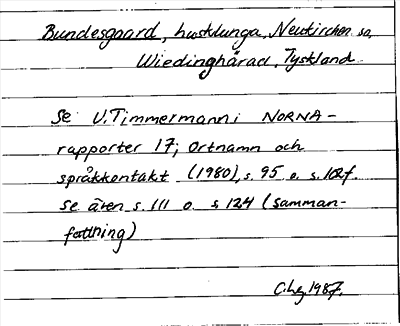 Bundesgaard, husklunga, Neukirchen sn,
Wiedinghärad, Tyskland
Se U. Timmermann i NORNA-
rapporter 17; Ortnamn och
språkkontakt (1980), s. 95 o. s. 102f.
se även s. 111 o. s. 124 (samman-
fattning)
1987.